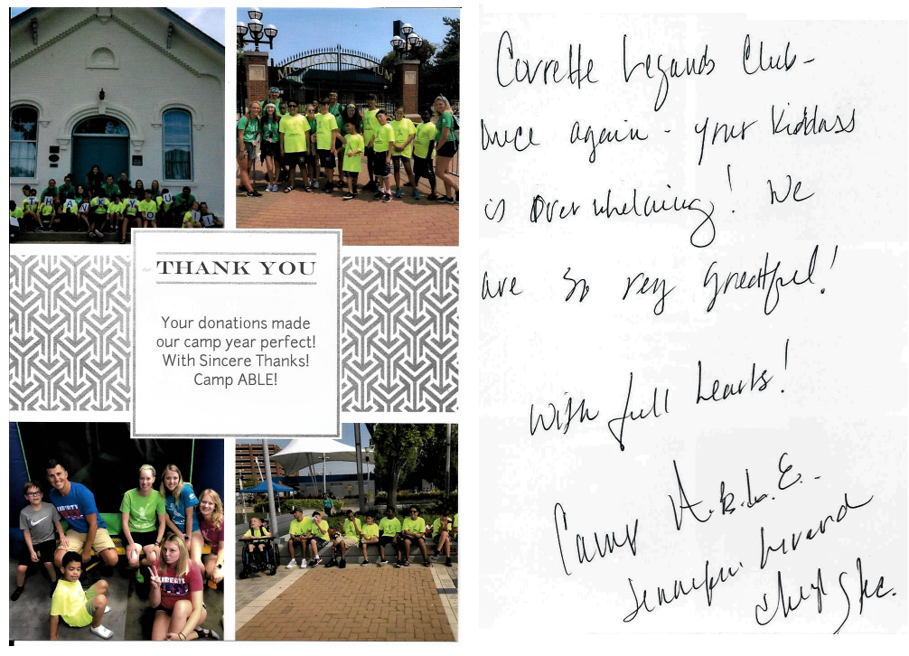 THANK YOU
THANK YOU
Your donations made
our camp year perfect!
With Sincere Thanks!
Camp ABLE!
LIBERTY
LIBERTY
Corvette Legends Club -
once again - your kindness
is overwhelming! We
are so very greatful!
With full hearts!
Camp A.B.L.E. -
Jennifer
Cheryl